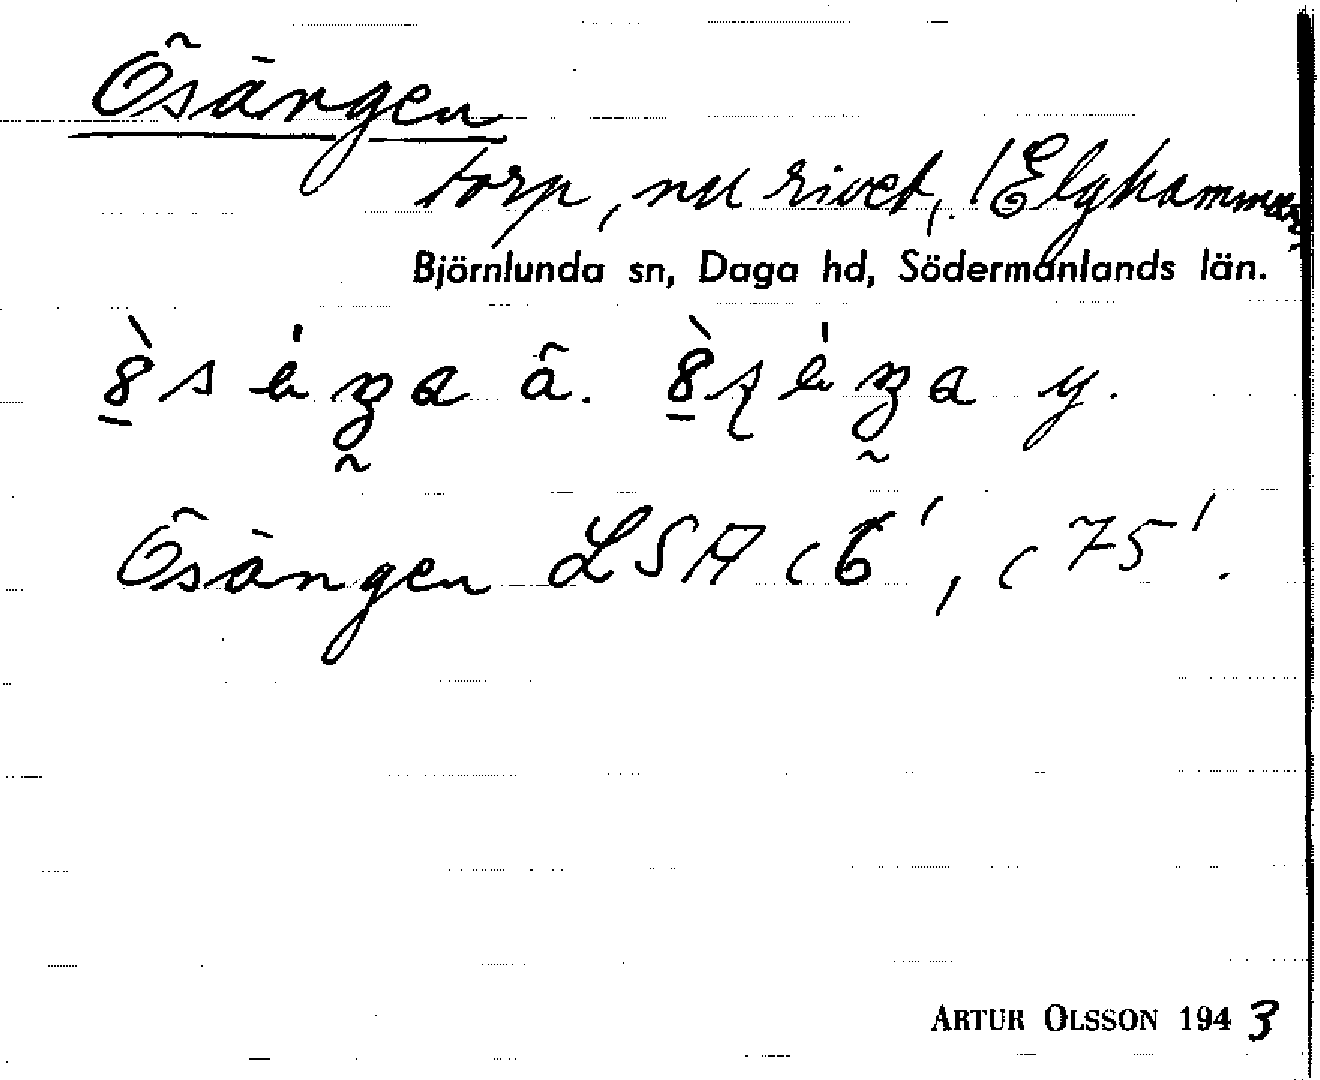 Ösängen
torp, nu rivet, /Elghammar
Björnlunda sn, Daga hd, Södermanlands län.
ä. y.
Ösängen LSA c 6', c 75'.
ARTUR OLSSON 1943